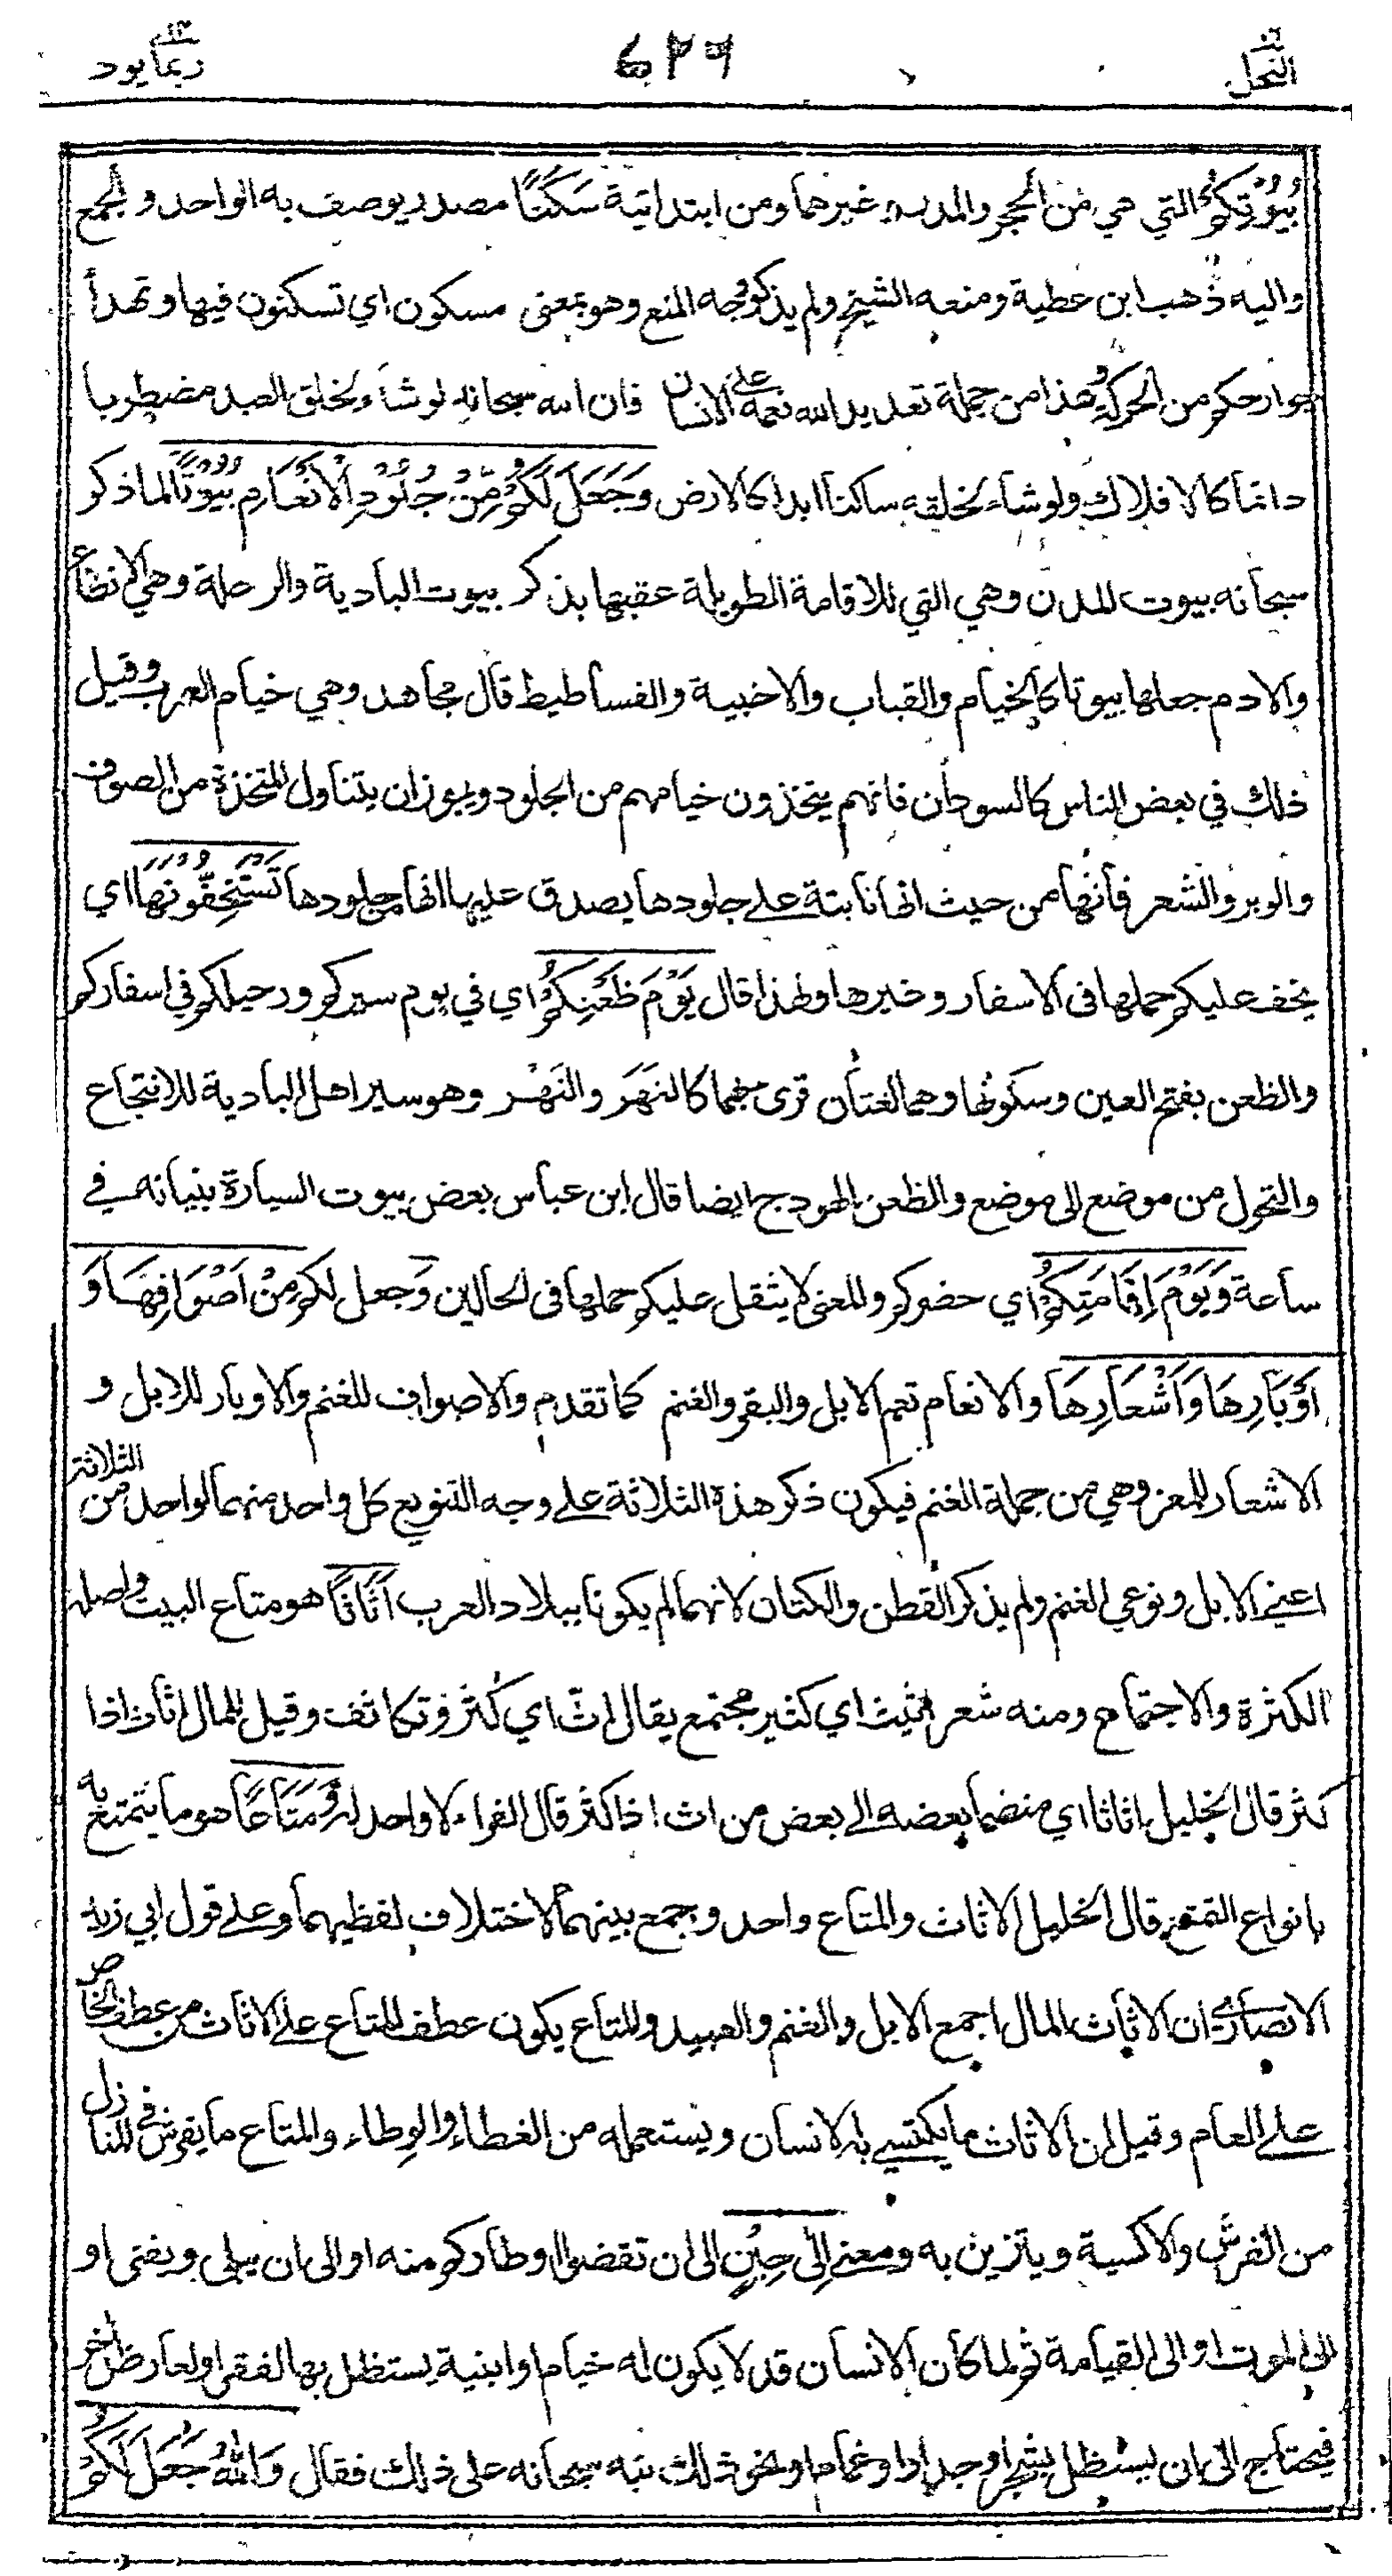 النحل ١٦
٦٢٦
ربما يود ١٤
بُيُوْتِكُمْ التي هي من الحجر والمدر وغيرهما ومن ابتدائية سَكَنًا مصدر يوصف به الواحد والجمع
واليه ذهب ابن عطية ومنعه الشيخ ولم يذكر وجه المنع وهو بمعنى مسكون اي تسكنون فيها وتهدأ
جوارحكم من الحركة وهذا من جملة تعديد الله نعمه على الانسان فان الله سبحانه لو شاء لخلق العبد مضطربا
دائما كالافلاك ولو شاء لخلقه ساكنا ابدا كالارض وَجَعَلَ لَكُمْ مِّنْ جُلُوْدِ الْاَنْعَامِ بُيُوْتًا لما ذكر
سبحانه بيوت المدن وهي التي للاقامة الطويلة عقبها بذكر بيوت البادية والرحلة وهي الانطاع
والادم جعلها بيوتا كالخيام والقباب والاخبية والفساطيط قال مجاهد وهي خيام العرب وقيل
ذلك في بعض الناس كالسودان فانهم يتخذون خيامهم من الجلود ويجوز ان يتناول المتخذة من الصوف
والوبر والشعر فانها من حيث انها نابتة على جلودها يصدق عليها انها من جلودها تَسْتَخِفُّوْنَهَا اي
يخف عليكم حملها في الاسفار وغيرها ولهذا قال يَوْمَ ظَعْنِكُمْ اي في يوم سيركم ورحيلكم في اسفاركم
والظعن بفتح العين وسكونها وهما لغتان قرئ بهما كالنَهَر والنَهْر وهو سير اهل البادية للانتجاع
والتحول من موضع الى موضع والظعن الهودج ايضا قال ابن عباس بعض بيوت السيارة بنيانه في
ساعة وَيَوْمَ اِقَامَتِكُمْ اي حضركم والمعنى لا يثقل عليكم حملها في الحالين وَجعل لكم مِنْ اَصْوَافِهَا وَ
اَوْبَارِهَا وَاَشْعَارِهَا والانعام تعم الابل والبقر والغنم كما تقدم والاصواف للغنم والاوبار للابل و
الاشعار للمعز وهي من جملة الغنم فيكون ذكر هذه الثلاثة على وجه التنويع كل واحد منهما لواحد من الثلاثة
اعني الابل ونوعي الغنم ولم يذكر القطن والكتان لانهما لم يكونا ببلاد العرب اَثَاثًا هو متاع البيت واصله
الكثرة والاجتماع ومنه شعر اثيث اي كثير مجتمع يقال اثّ اي كثر وتكاثف وقيل للمال اثاث اذا
كثر قال الخليل اثاثا اي منضما بعضه الى بعض من اث اذا كثر قال الفراء لا واحد له وَّمَتَاعًا هو ما يتمتع به
بانواع التمتع قال الخليل الاثاث والمتاع واحد وجمع بينهما لاختلاف لفظيهما وعلى قول ابي زيد
الانصاري ان الاثاث المال اجمع الابل والغنم والعبيد والمتاع يكون عطف المتاع على الاثاث من عطف الخاص
على العام وقيل ان الاثاث ما يكتسي به الانسان ويستعمله من الغطاء والوطاء والمتاع ما يفرش في المنازل
من الفرش والاكسية ويتزين به ومعنى اِلٰى حِيْنٍ الى ان تقضوا اوطاركم منه او الى ان يبلى ويفنى او
الى الموت او الى القيامة ثم لما كان الانسان قد لا يكون له خيام او ابنية يستظل بها لفقر او لعارض اخر
فيحتاج الى ان يستظل بشجر او جدار او غمام او نحو ذلك نبه سبحانه على ذلك فقال وَاللّٰهُ جَعَلَ لَكُمْ